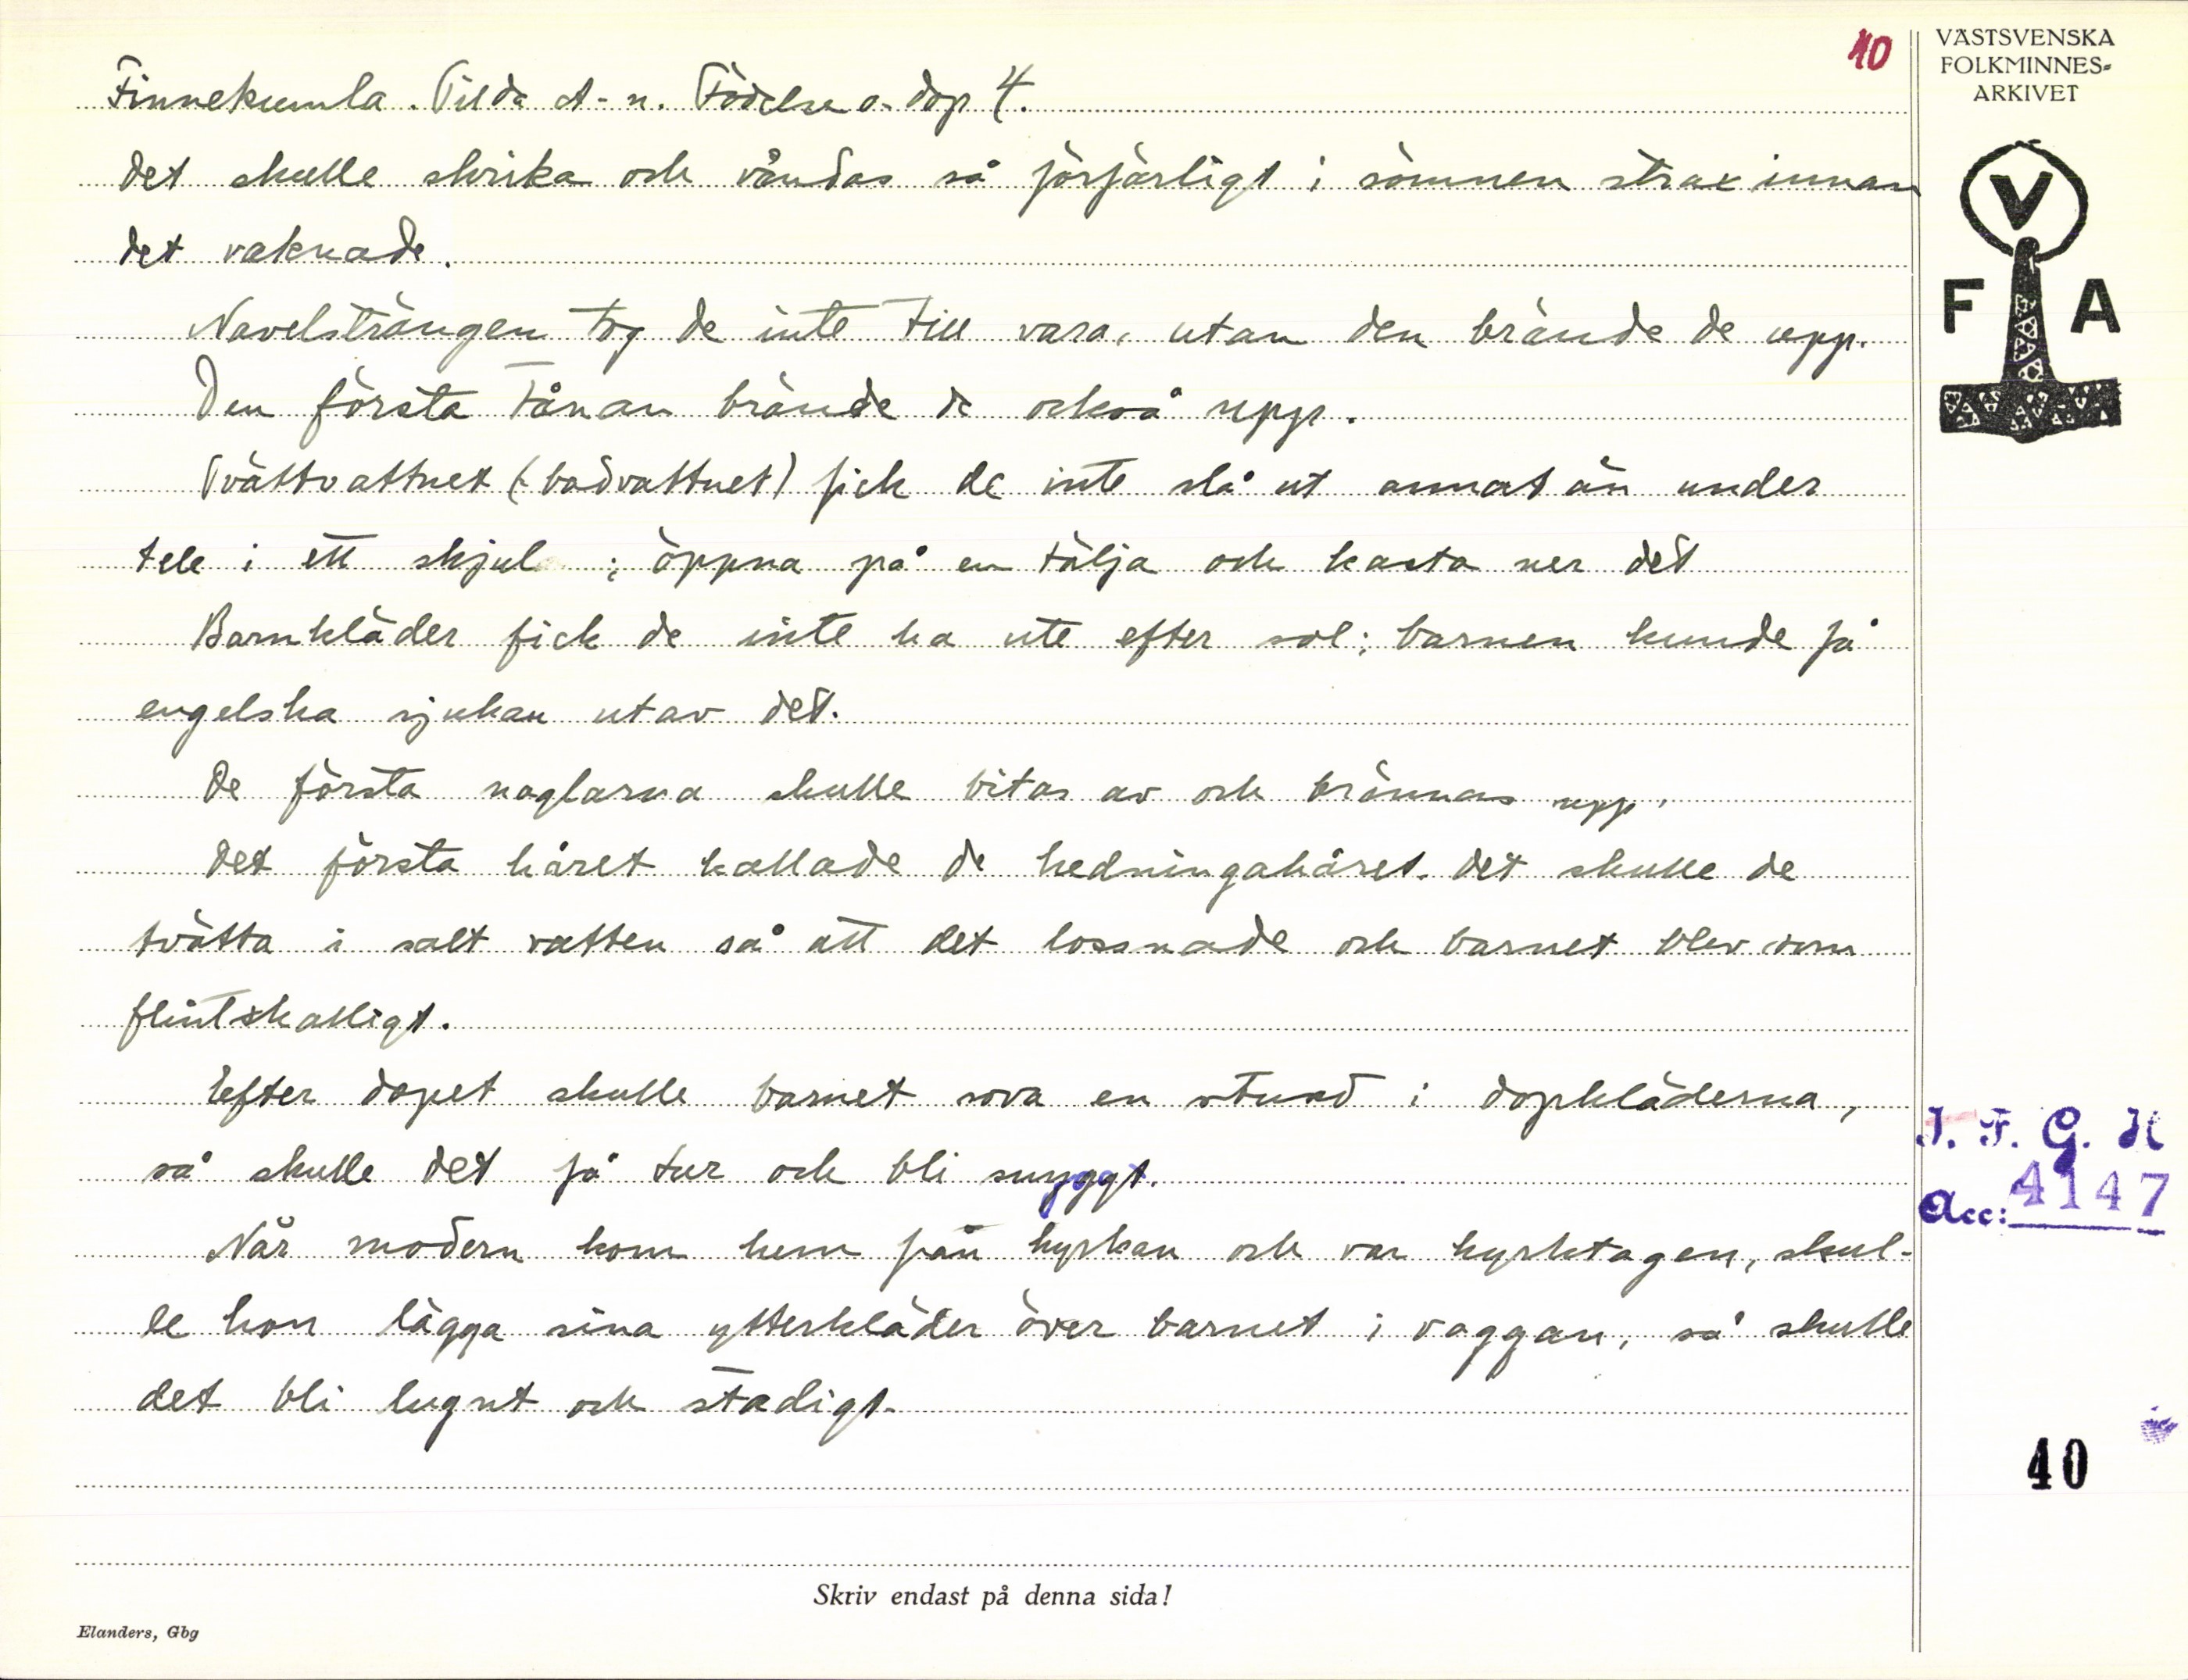 10
VÄSTSVENSKA
FOLKMINNES-
ARKIVET
V
F A
Finnekumla. Tilda A-n. Födelse o. dop 4.
det skulle skrika och våndas så förfärligt i sömnen strax innan
det vaknade.
Navelsträngen tog de inte till vara, utan den brände de upp.
Den första tånan brände de också upp.
Tvättvattnet (badvattnet) fick de inte slå ut annat än under
tele i ett skjul; öppna på en tilja och kasta ner det
Barnkläder fick de inte ha ute efter sol; barnen kunde få
engelska sjukan utav det.
De första naglarna skulle bitas av och brännas upp.
Det första håret kallade de hedningahåret. Det skulle de
tvätta i salt vatten så att det lossnade och barnet blev som
flintskalligt.
Efter dopet skulle barnet sova en stund i dopkläderna,
så skulle det få tur och bli snyggt.
När modern kom hem från kyrkan och var kyrktagen, skul-
le hon lägga sina ytterkläder över barnet i vaggan, så skulle
det bli lugnt och stadigt.
I. F. G. H
Acc: 4147
40
Skriv endast på denna sida!
Elanders, Gbg